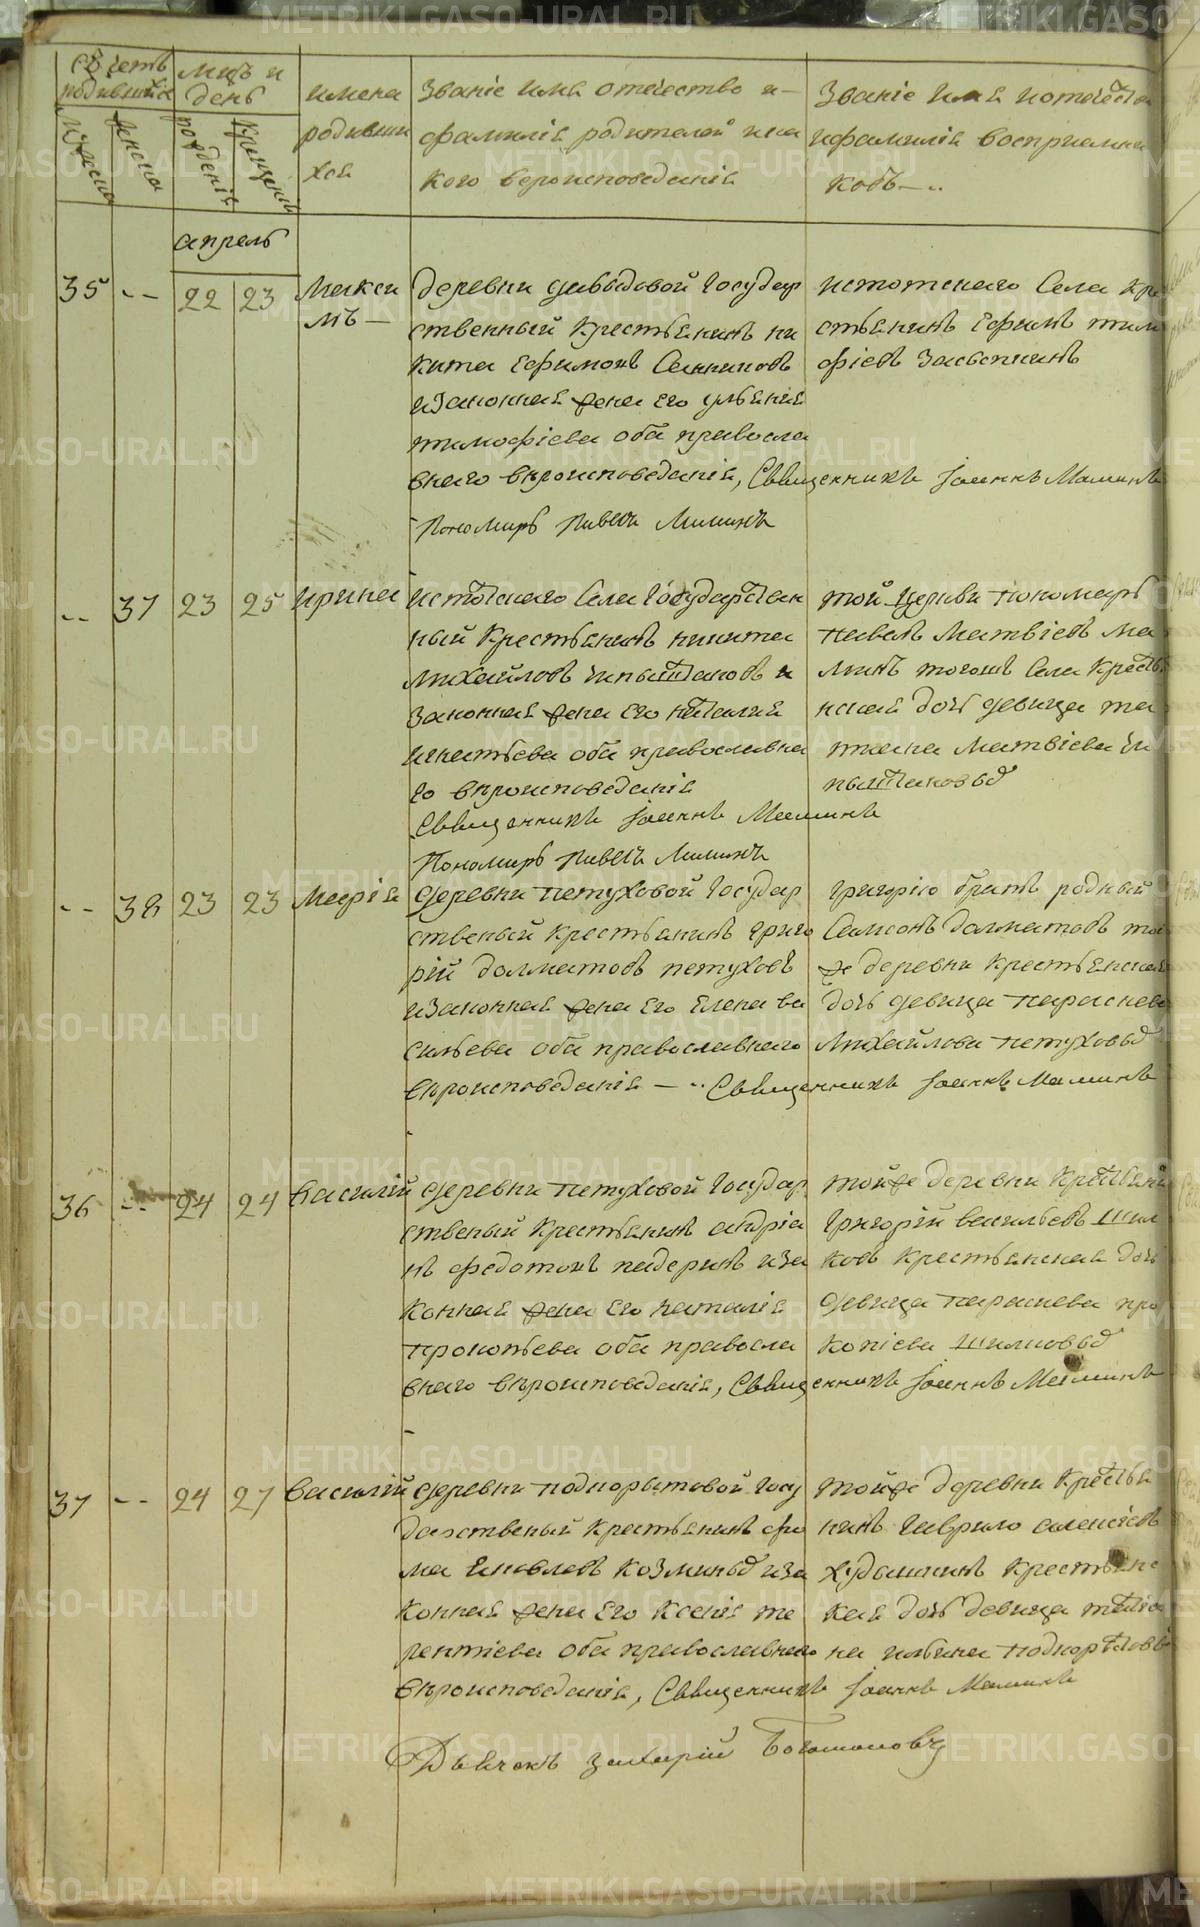 METRIKI.GASO-URAL.RU
Счетъ родившихся
Мужеска
Женска
Мцъ и день
рожденія
Крещенія
имена родивши хся
Званіе имя отечество и фамилія родителей и ка кого вероисповеданія
Званіе имя и отечество и фамилія восприемни ковъ
апрель
35 -- 22 23
Макси
мъ
деревни давыдовой Государ
ственный Крестьянинъ ни
кита Ефимовъ Санниковъ
и законная жена его ульянія
тимофіева оба правосла
внаго вѣроисповеданія, Священникъ Іоаннъ Маминъ
Пономарь Павелъ Маминъ
истотскаго Села Кре
стьянинъ Ефимъ тим
офіевъ
-- 37 23 25
ирина
истотскаго Села Государствен
ный Крестьянинъ никита
михайловъ Чипыштановъ и
законная жена его наталия
игнатьева оба православна
го вѣроисповеданія
Священникъ Іоаннъ Маминъ
Пономарь Павелъ Маминъ
той Церкви пономарь
павелъ Матвіевъ ма
минъ тогожъ Села Кресть
нская дочь девица та
тиана Матвіева Чи
пыштановыд
-- 38 23 23
Марія
деревни петуховой Государ
ственый крестьянинъ григо
рій долматовъ петуховъ
и законная жена его Елена ва
сильева оба православнаго
вѣроисповеданія — Священникъ Іоаннъ Маминъ
григорію братъ родный
Самсонъ долматовъ той
же деревни крестьянская
дочь девица параскева
михайлова петуховыд
36 -- 24 24
Василій
деревни петуховой Государ
ственый крестьянинъ андріа
нъ федотовъ падеринъ и за
конная жена его наталія
прокопьева оба правосла
внаго вѣроисповеданія, Священникъ Іоаннъ Маминъ
тойже деревни Крестьянинъ
григорій васильевъ Шил
ковъ крестьянская дочь
девица параскева про
копіева шилковыд
37 -- 24 27
Василій
деревни подкорытовой госу
дарственый крестьянинъ фо
ма Яковлевъ Козминыд и за
конная жена его Ксенія те
рентіева оба православнаго
вѣроисповеданія, Священникъ Іоаннъ Маминъ
тойже деревни крестья
нинъ гаврило алексіевъ
худышкинъ крестьянс
кая дочь девица татіа
на ильина подкорытовы
Дьячокъ Захарій Богомоловъ